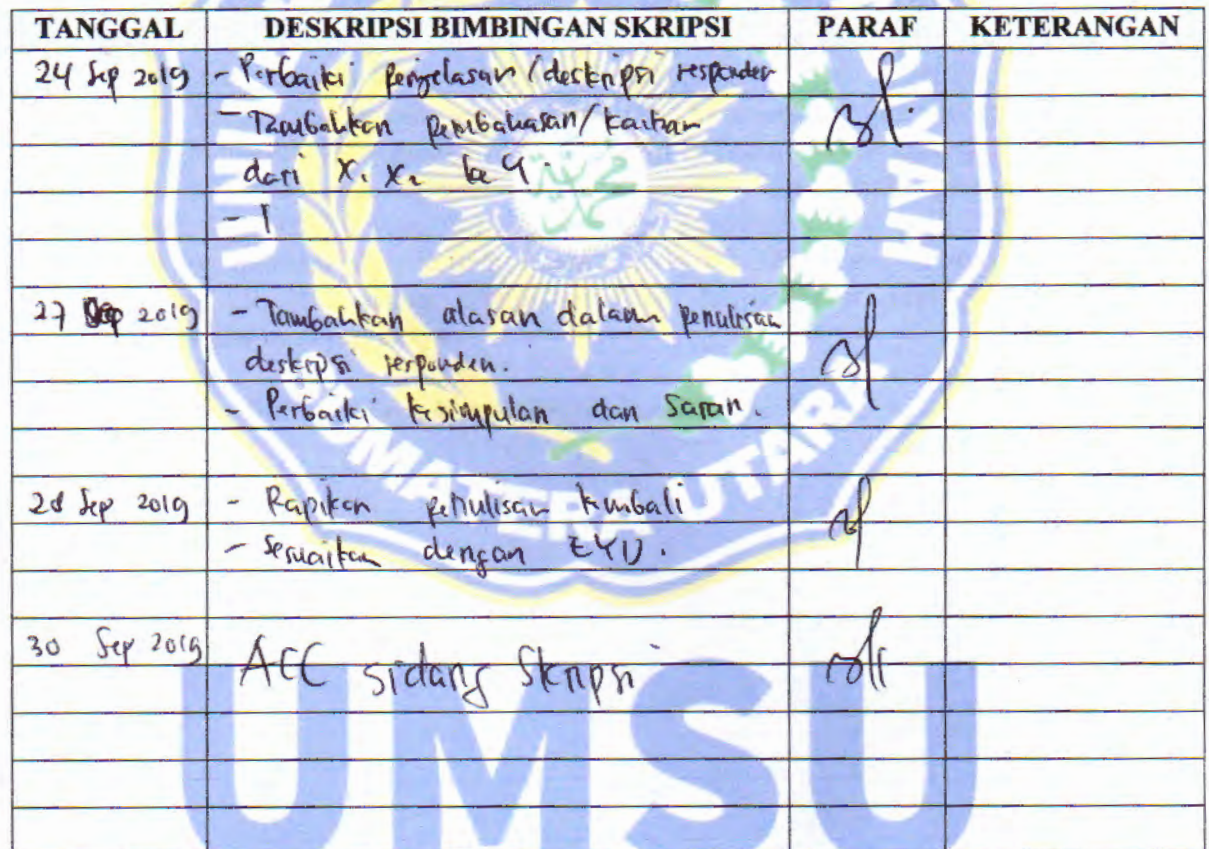 TANGGAL DESKRIPSI BIMBINGAN SKRIPSI PARAF KETERANGAN
24 Sep 2019 - Perbaiki penjelasan/deskripsi responden
- Tambahkan pembahasan/kaitan
dari X1 X2 ke Y.
27 Sep 2019 - Tambahkan alasan dalam penulisan
deskripsi responden.
- Perbaiki kesimpulan dan Saran.
28 Sep 2019 - Rapikan penulisan kembali
- Sesuaikan dengan EYD.
30 Sep 2019 ACC sidang Skripsi
SUMATERA UTARA
UMSU